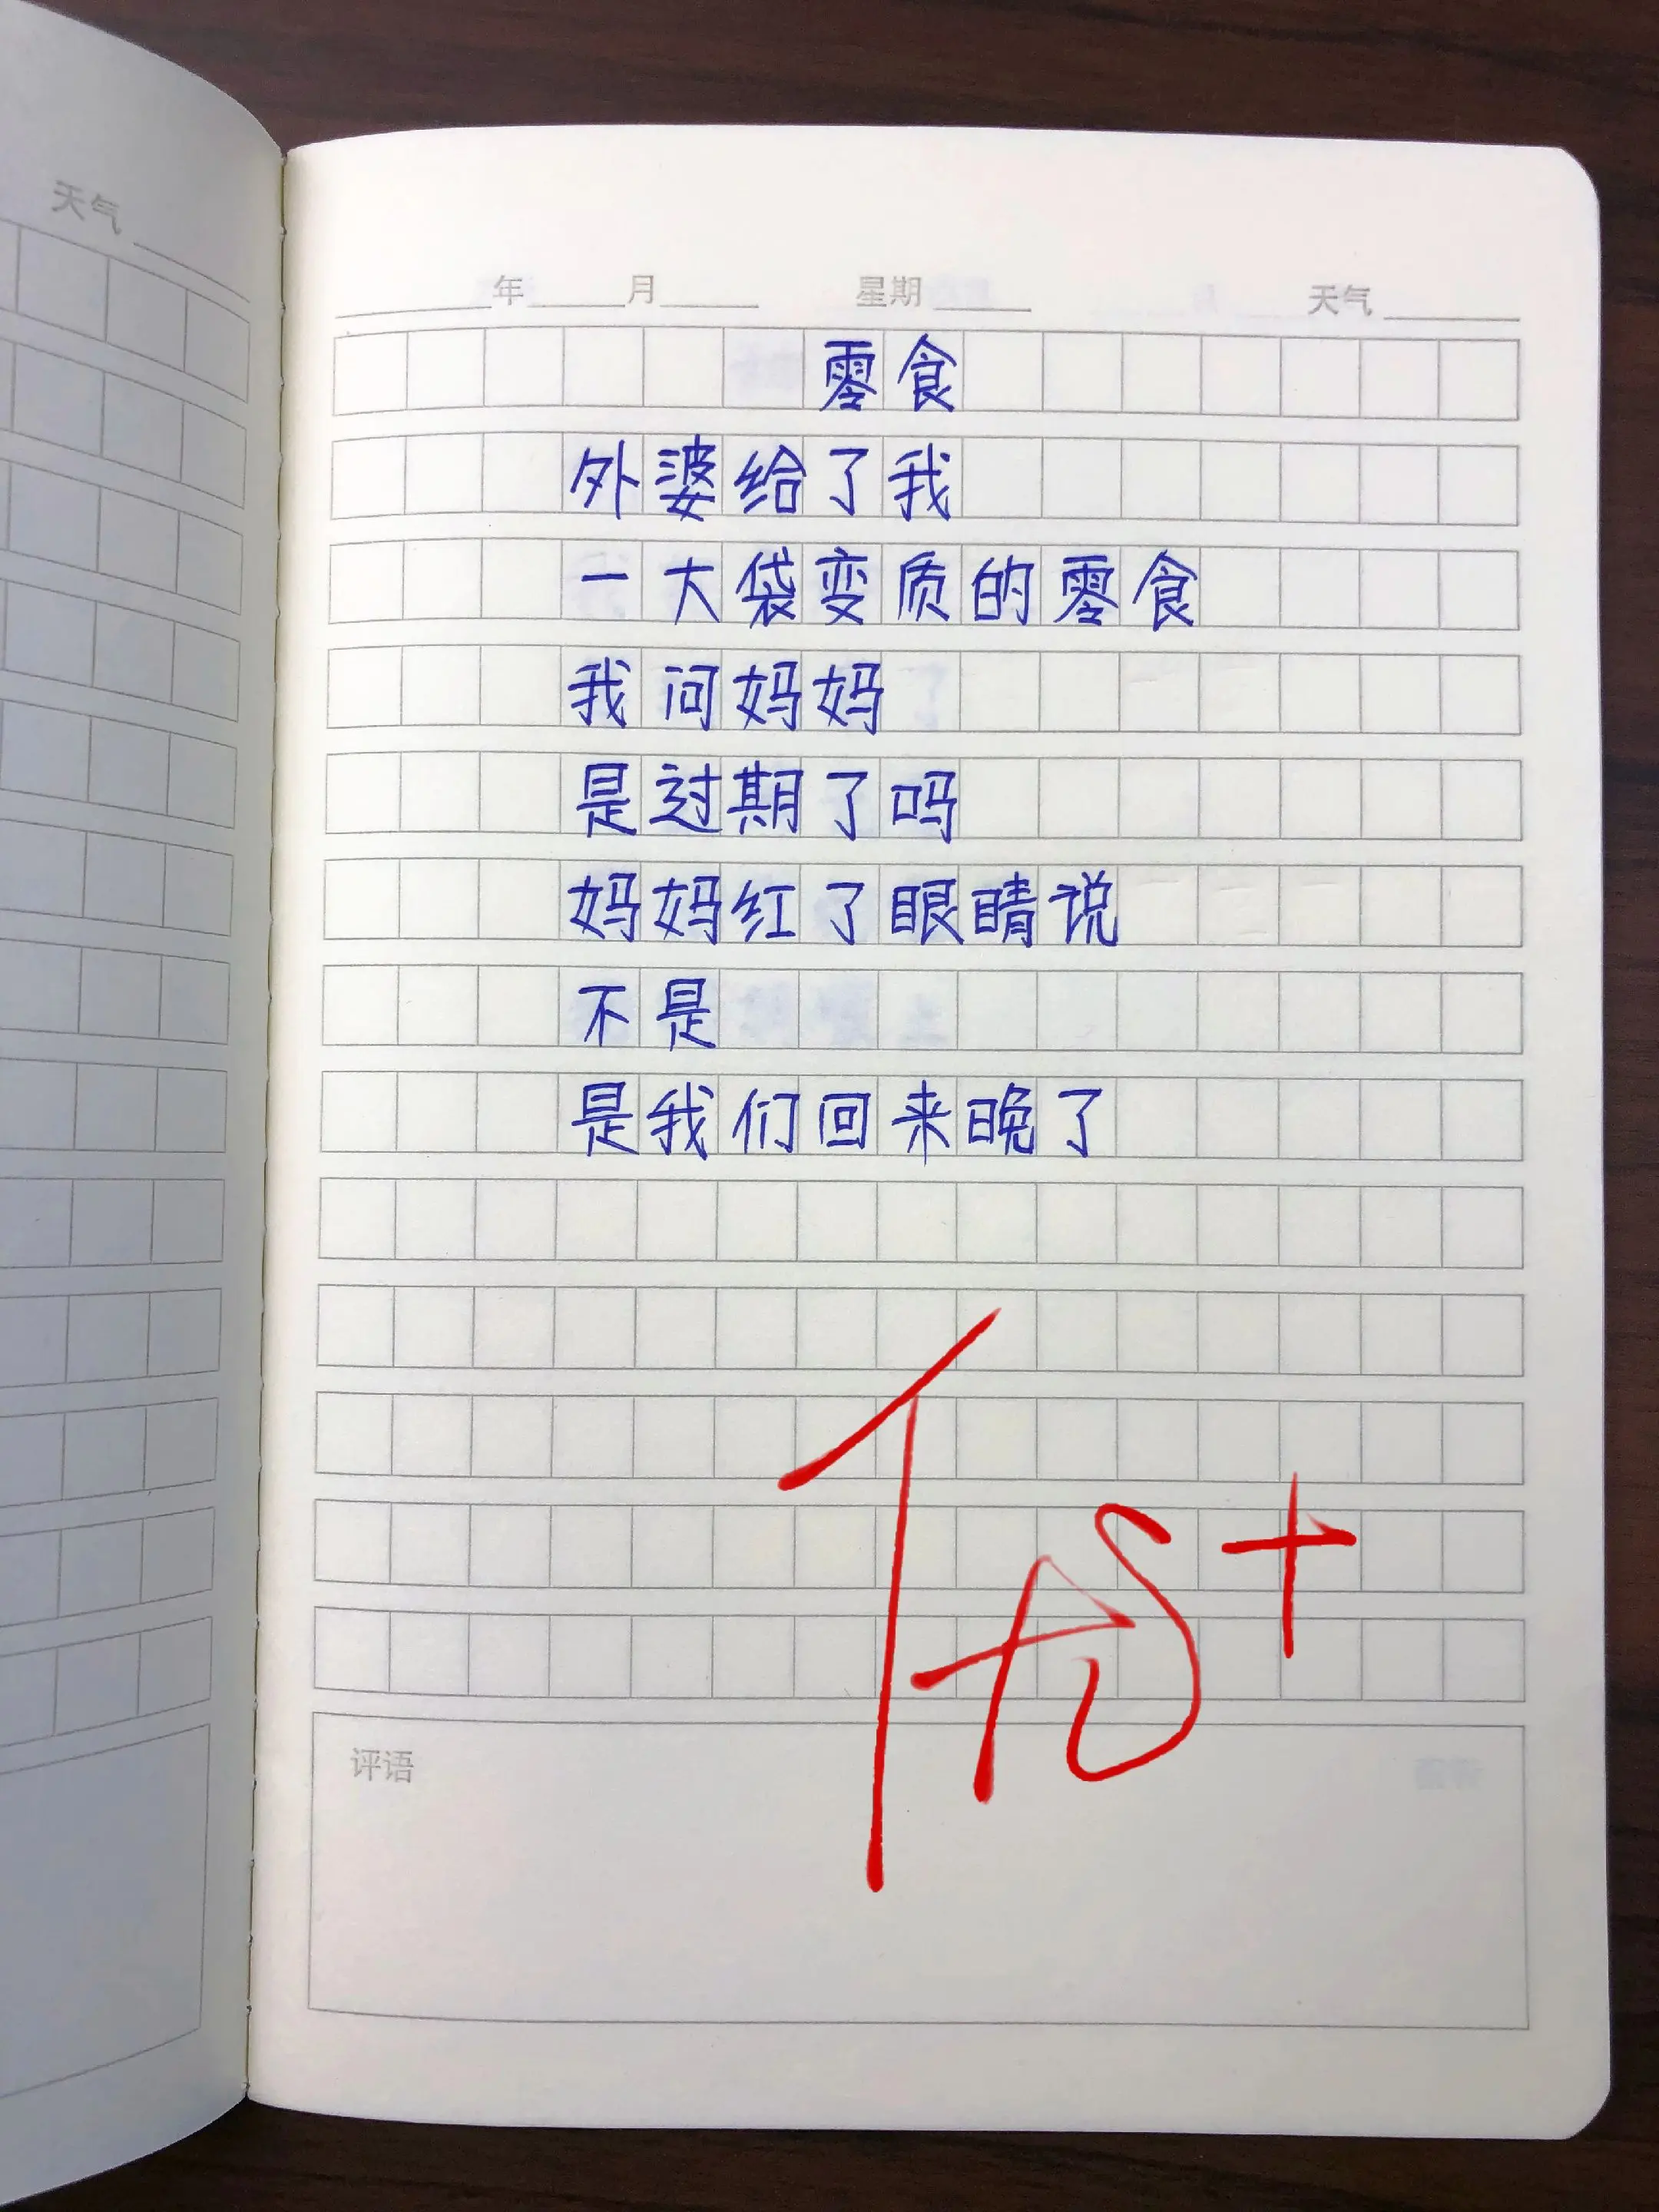 天气
年 月 星期 天气
零食
外婆给了我
一大袋变质的零食
我问妈妈
是过期了吗
妈妈红了眼睛说
不是
是我们回来晚了
评语